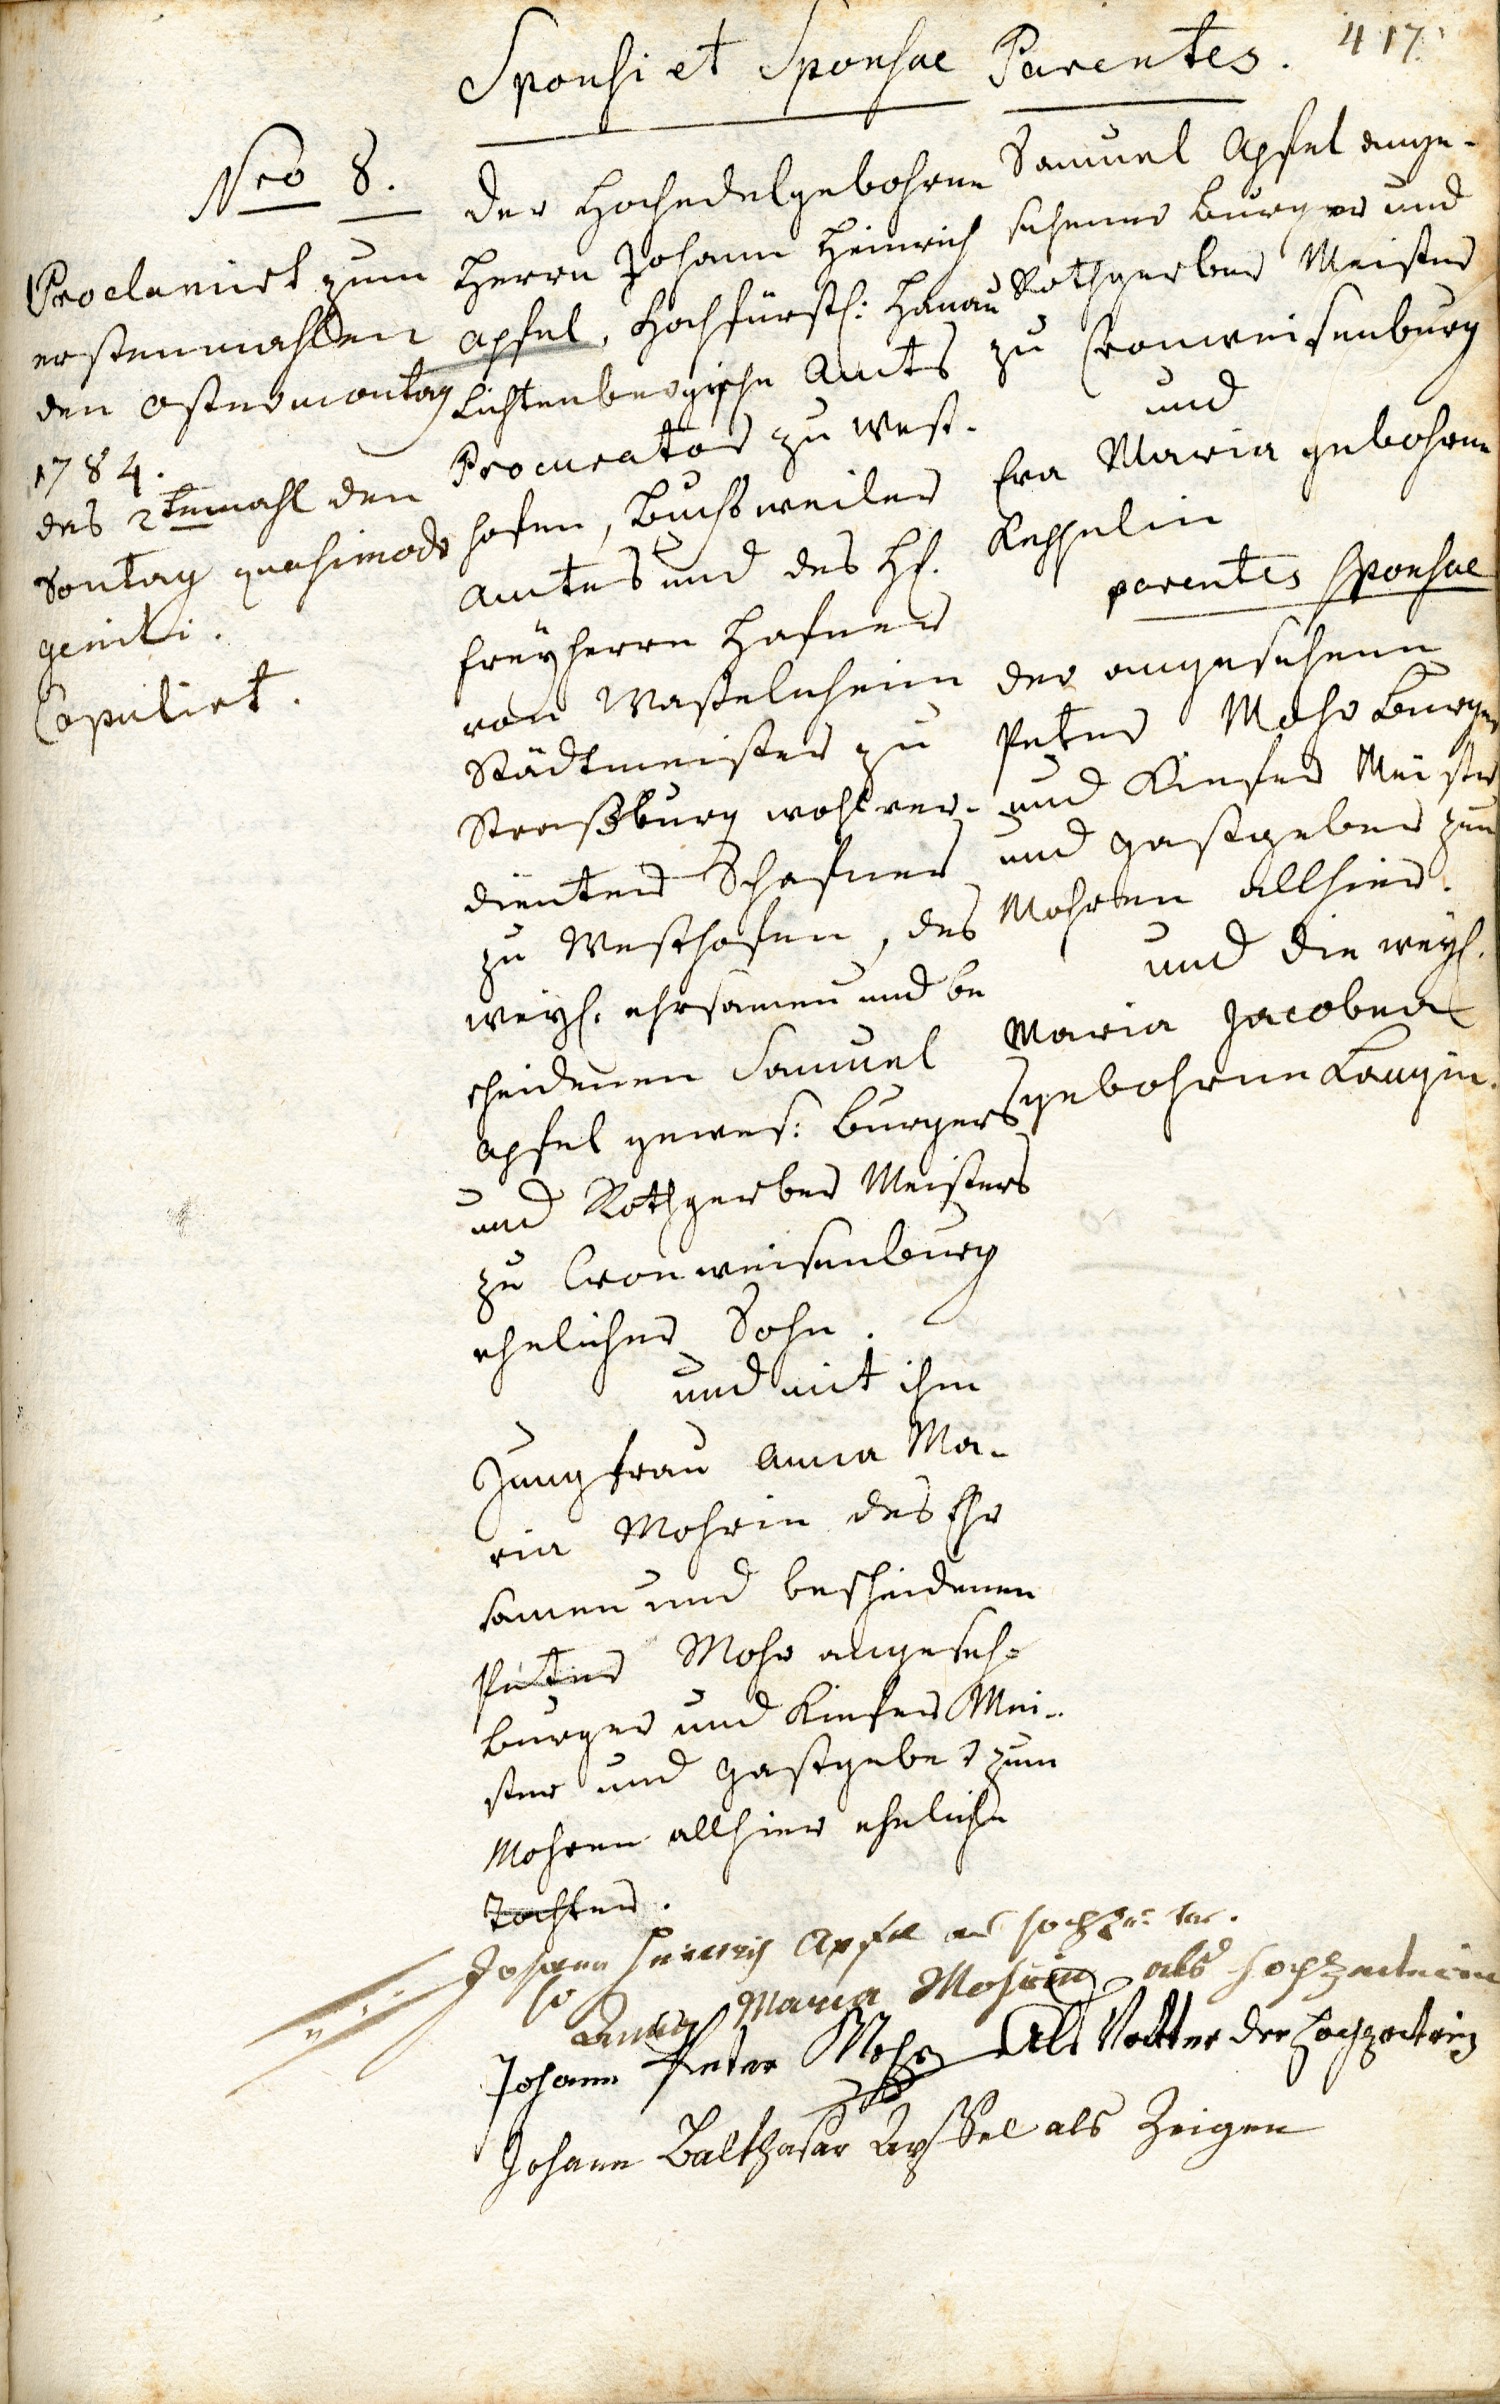 417.
Sponsi et Sponsae Parentes.
Nro 8.
Proclamirt zum
erstenmahlen
den Ostermontag
1784.
das 2tenmahl den
Sontag quasimodo
geniti.
Copulirt.
Der Hochedelgebohrne
Herrn Johann Heinrich
Apfel, Hochfürstl: Hanau
Lichtenbergische Amts
Procurator zu West-
hofen, Buchsweiler
Amtes und des H.
Freyherrn Hafner
von Wasselnheim
Städtmeister zu
Straßburg wohlver-
dienter Schafner
zu Westhofen, des
weyl. ehrsamen und be
scheidenen Samuel
Apfel gewes: Burgers
und Rothgerber Meisters
zu Cronweisenburg
ehelicher Sohn.
und mit ihm
Jungfrau Anna Ma-
ria Mohrin des Ehr
samen und bescheidenen
Peter Mohr angeseh-
burger und Kiefer Mei-
ster und gastgeber zum
Mohren allhier eheliche
Tochter.
Samuel Apfel ange-
sehener Burger und
Rothgerber Meister
zu Cronweisenburg
und
Eva Maria gebohrne
Keßelin
parentes Sponsae
der angesehene
Peter Mohr Burger
und Kiefer Meister
und gastgeber zum
Mohren allhier.
und die weyl.
Maria Jacobea
gebohrne Langin.
Johann Heinrich Apfel als Hochzeiter.
Anna Maria Mohrin als Hochzeiterin
Johann Peter Mohr Als Vatter der Hochzeiterin
Johann Balthasar Apffel als Zeigen